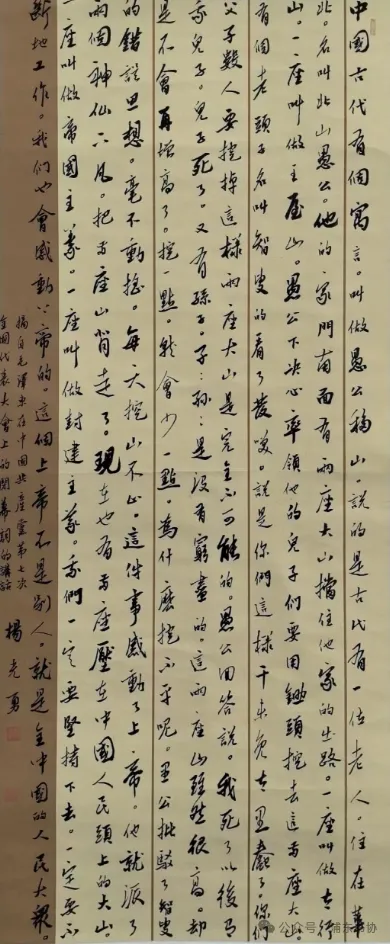 中國古代有個寓言。叫做愚公移山。說的是古代有一位老人。住在華
北。名叫北山愚公。他的家門南面有兩座大山擋住他家的出路。一座叫做太行
山。一座叫做王屋山。愚公下决心率領他的兒子們要用鋤頭挖去這兩座大山。
有個老頭子名叫智叟的看了發笑。說是你們這樣干未免太愚蠢了。你們
父子數人要挖掉這樣兩座大山是完全不可能的。愚公回答說。我死了以後有
我兒子。兒子死了。又有孫子。子孫:是沒有窮盡的。這兩座山雖然很高。却
是不會再增高了。挖一點。就會少一點。為什麽挖不平呢。愚公批駁了智叟
的錯誤思想。毫不動搖。每天挖山不止。這件事感動了上帝。他就派了
兩個神仙下凡。把兩座山背走了。現在也有兩座壓在中國人民頭上的大山。
一座叫做帝國主義。一座叫做封建主義。我們一定要堅持下去。一定要不
斷地工作。我們也會感動上帝的。這個上帝不是別人。就是全中國的人民大衆。
摘自毛澤東在中國共產黨第七次
全國代表大會上的閉幕詞的講話
楊光勇
公众号·浦东书协